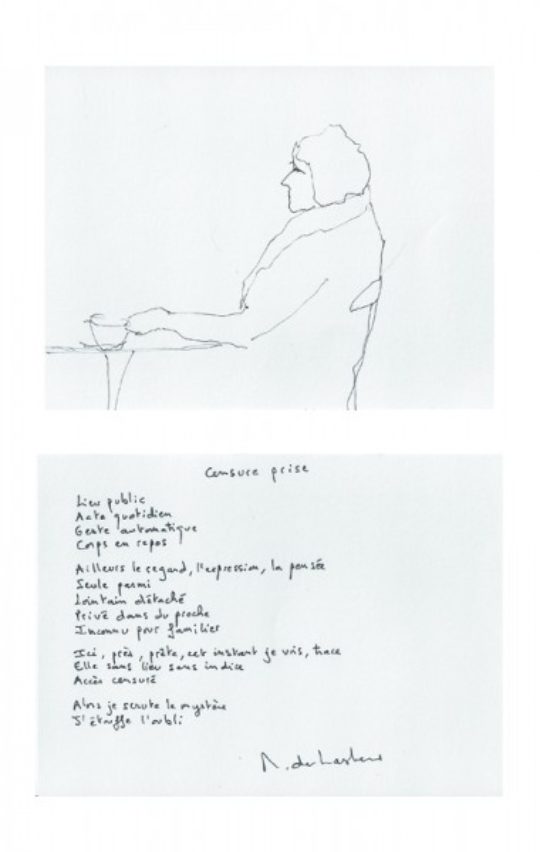 Censure prise
Lieu public
Acte quotidien
Geste automatique
Corps en repos
Ailleurs le regard, l'expression, la pensée
Seule parmi
Lointain détaché
Privé dans du proche
Inconnu pour familier
Ici, près, prête, cet instant je vois, trace
Elle sans lieu sans indice
Accès censuré
Alors je scrute le mystère
J'étouffe l'oubli